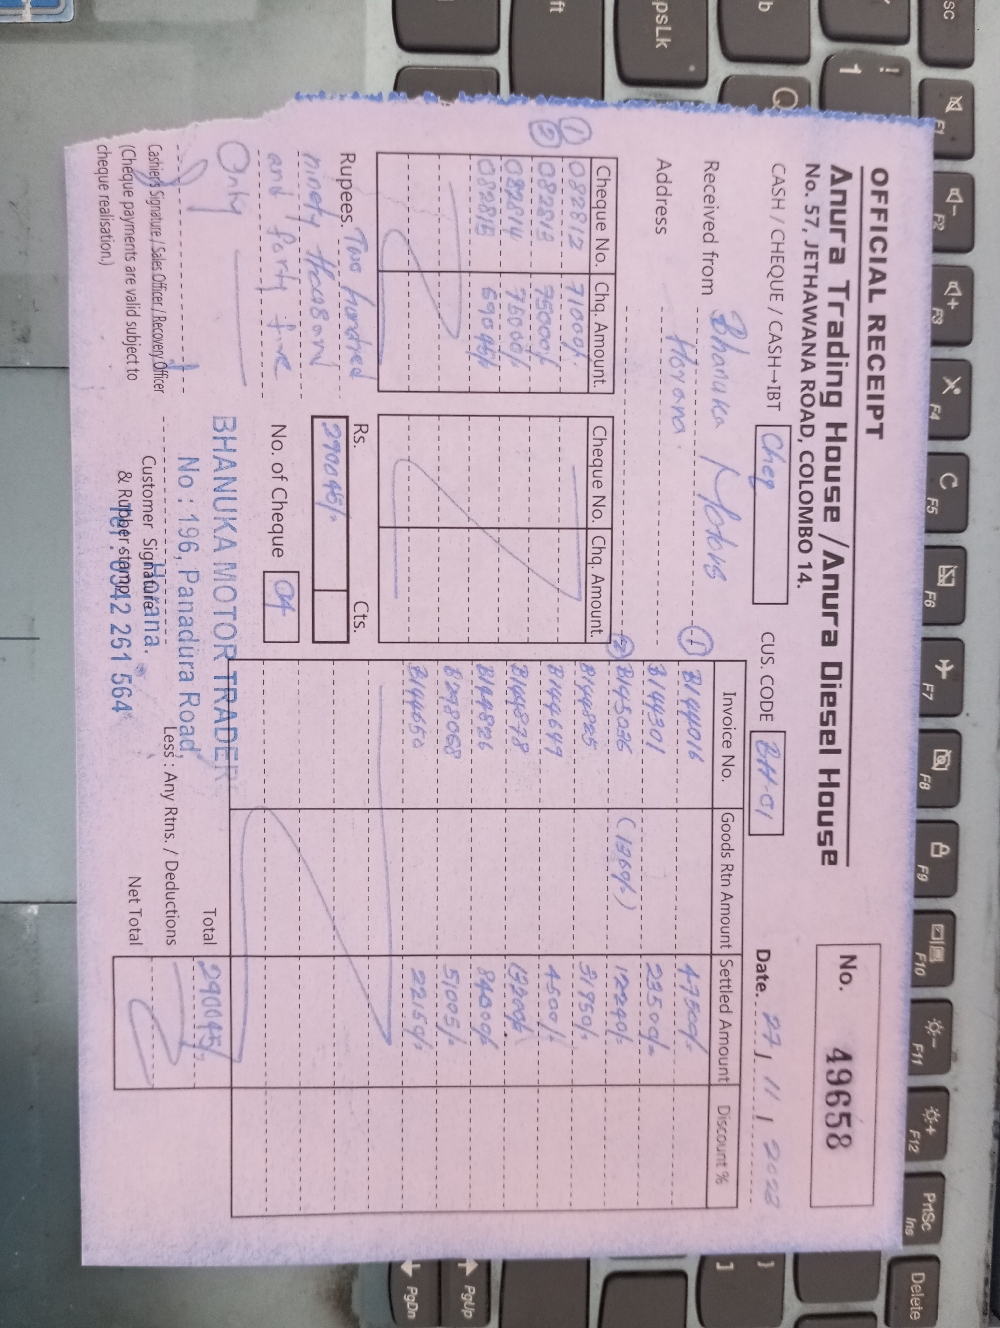 OFFICIAL RECEIPT
Anura Trading House / Anura Diesel House
No. 57, JETHAWANA ROAD, COLOMBO 14.
No. 49658
CASH / CHEQUE / CASH→IBT Cheq
CUS. CODE BH-01
Date. 27 / 11 / 2023
Received from Bhanuka Motors
Address Horana.
Cheque No. Chq. Amount.
① 082812 71000/-
② 082813 75000/-
082814 75000/-
082815 69045/-
Cheque No. Chq. Amount.
Invoice No. Goods Rtn Amount Settled Amount Discount %
① B144016 47500/-
B144301 23500/-
② B145036 (1360/-) 12240/-
B144825 31950/-
B144649 4500/-
B144878 13200/-
B144826 84000/-
B298068 51005/-
B144650 22150/-
Rupees. Two hundred
ninety thousand
and forty five
Only
Rs. Cts.
290045/-
No. of Cheque 04
Total 290045/-
Less : Any Rtns. / Deductions
Net Total
BHANUKA MOTOR TRADER
No : 196, Panadura Road,
Horana.
Tel : 0342 261 564
Cashier's Signature / Sales Officer / Recovery Officer
(Cheque payments are valid subject to
cheque realisation.)
Customer Signature
& Rubber stamp
F1
F2
F3
F4
C F5
F6
F7
F8
F9
F10
F11
F12
PrtSc
Ins
Delete
! 1
Q
PgUp
PgDn